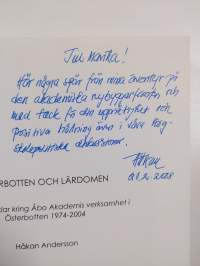 Till Monika!
Här några spår från mina äventyr på
den akademiska nybyggarfronten och
med tack för din uppriktighet och
positiva hållning även i våra
diskussioner.
Håkan
21.2.2008
RBOTTEN OCH LÄRDOMEN
dar kring Åbo Akademis verksamhet i
Österbotten 1974-2004
Håkan Andersson